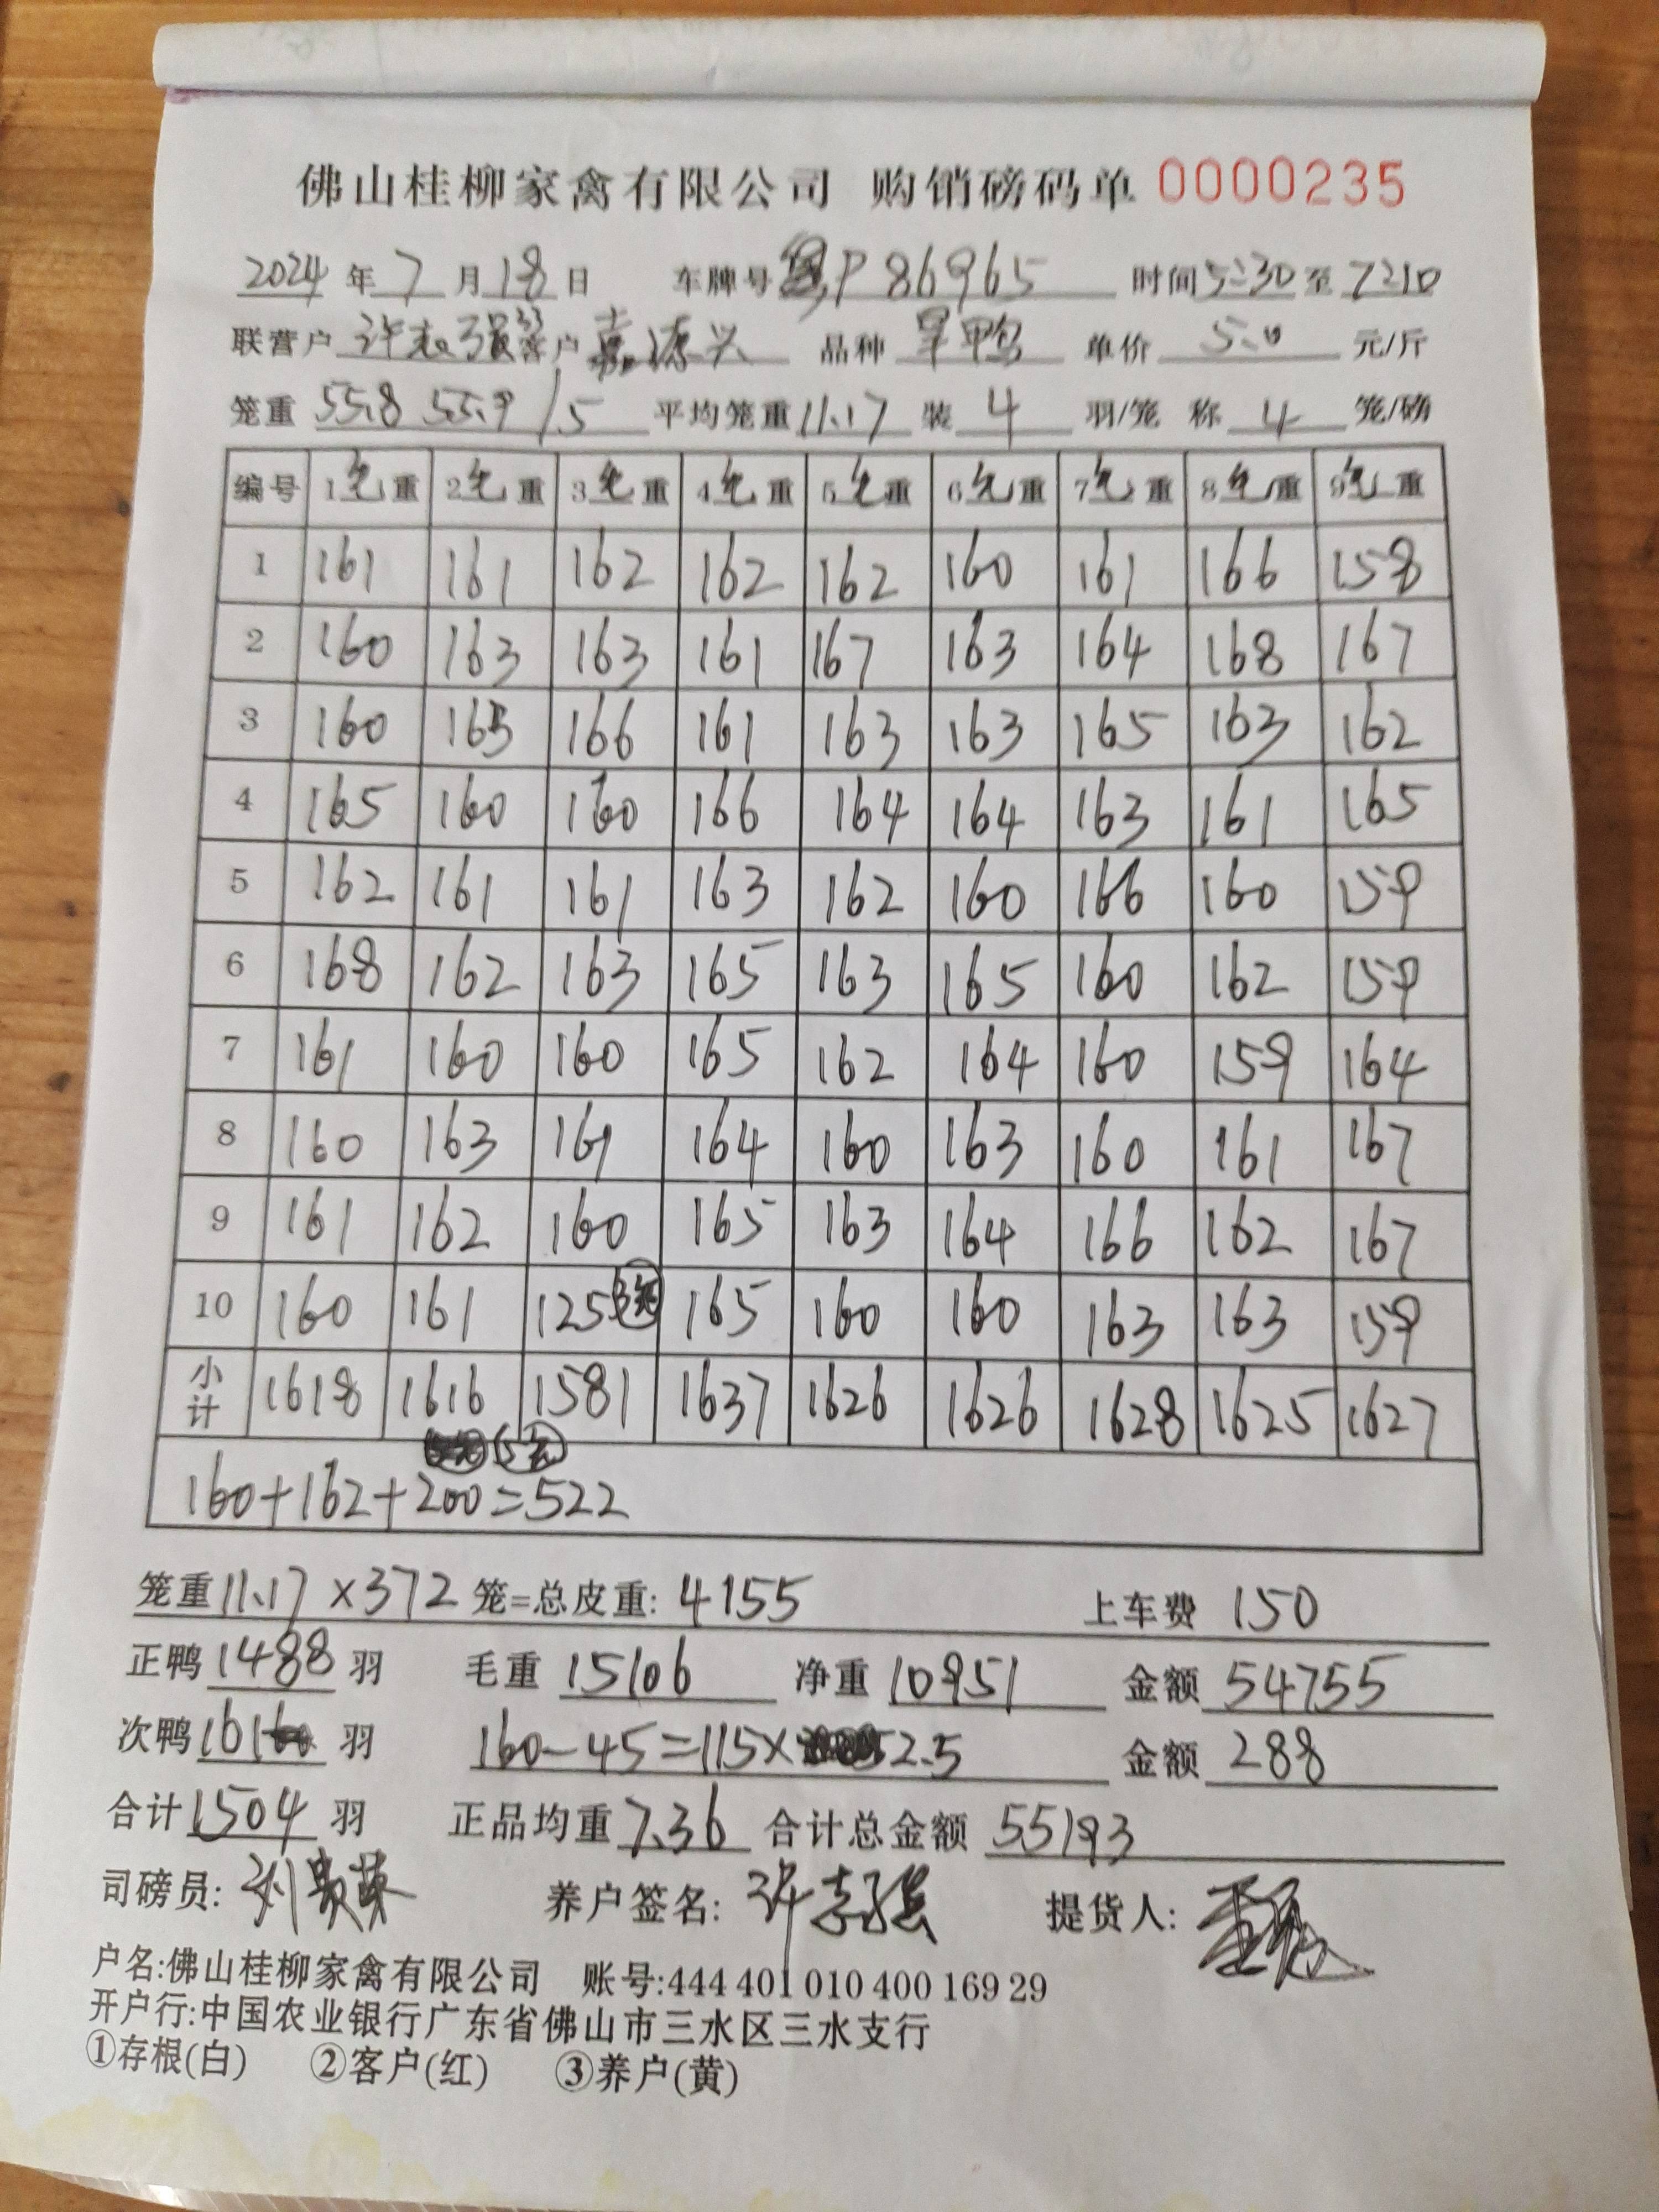 佛山桂柳家禽有限公司 购销磅码单 0000235
2024 年 7 月 18 日 车牌号 粤P86965 时间 5:30 至 7:10
联营户 许志强 客户 嘉源兴 品种 旱鸭 单价 5.0 元/斤
笼重 55.8 55.9 /5 平均笼重 11.17 装 4 羽/笼 称 4 笼/磅
编号 1 毛 重 2 毛 重 3 毛 重 4 毛 重 5 毛 重 6 毛 重 7 毛 重 8 毛 重 9 毛 重
1 161 161 162 162 162 160 161 166 158
2 160 163 163 161 167 163 164 168 167
3 160 163 166 161 163 163 165 163 162
4 165 160 160 166 164 164 163 161 165
5 162 161 161 163 162 160 166 160 159
6 168 162 163 165 163 165 160 162 159
7 161 160 160 165 162 164 160 159 164
8 160 163 161 164 160 163 160 161 167
9 161 162 160 165 163 164 166 162 167
10 160 161 125 165 160 160 163 163 159
小计 1618 1616 1581 1637 1626 1626 1628 1625 1627
160+162+200=522
笼重 11.17 ×372 笼=总皮重: 4155 上车费 150
正鸭 1488 羽 毛重 15106 净重 10951 金额 54755
次鸭 16 羽 160-45=115×2.5 金额 288
合计 1504 羽 正品均重 7.36 合计总金额 55193
司磅员: 刘贵英 养户签名: 许志强 提货人:
户名:佛山桂柳家禽有限公司 账号:444 401 010 400 169 29
开户行:中国农业银行广东省佛山市三水区三水支行
①存根(白) ②客户(红) ③养户(黄)